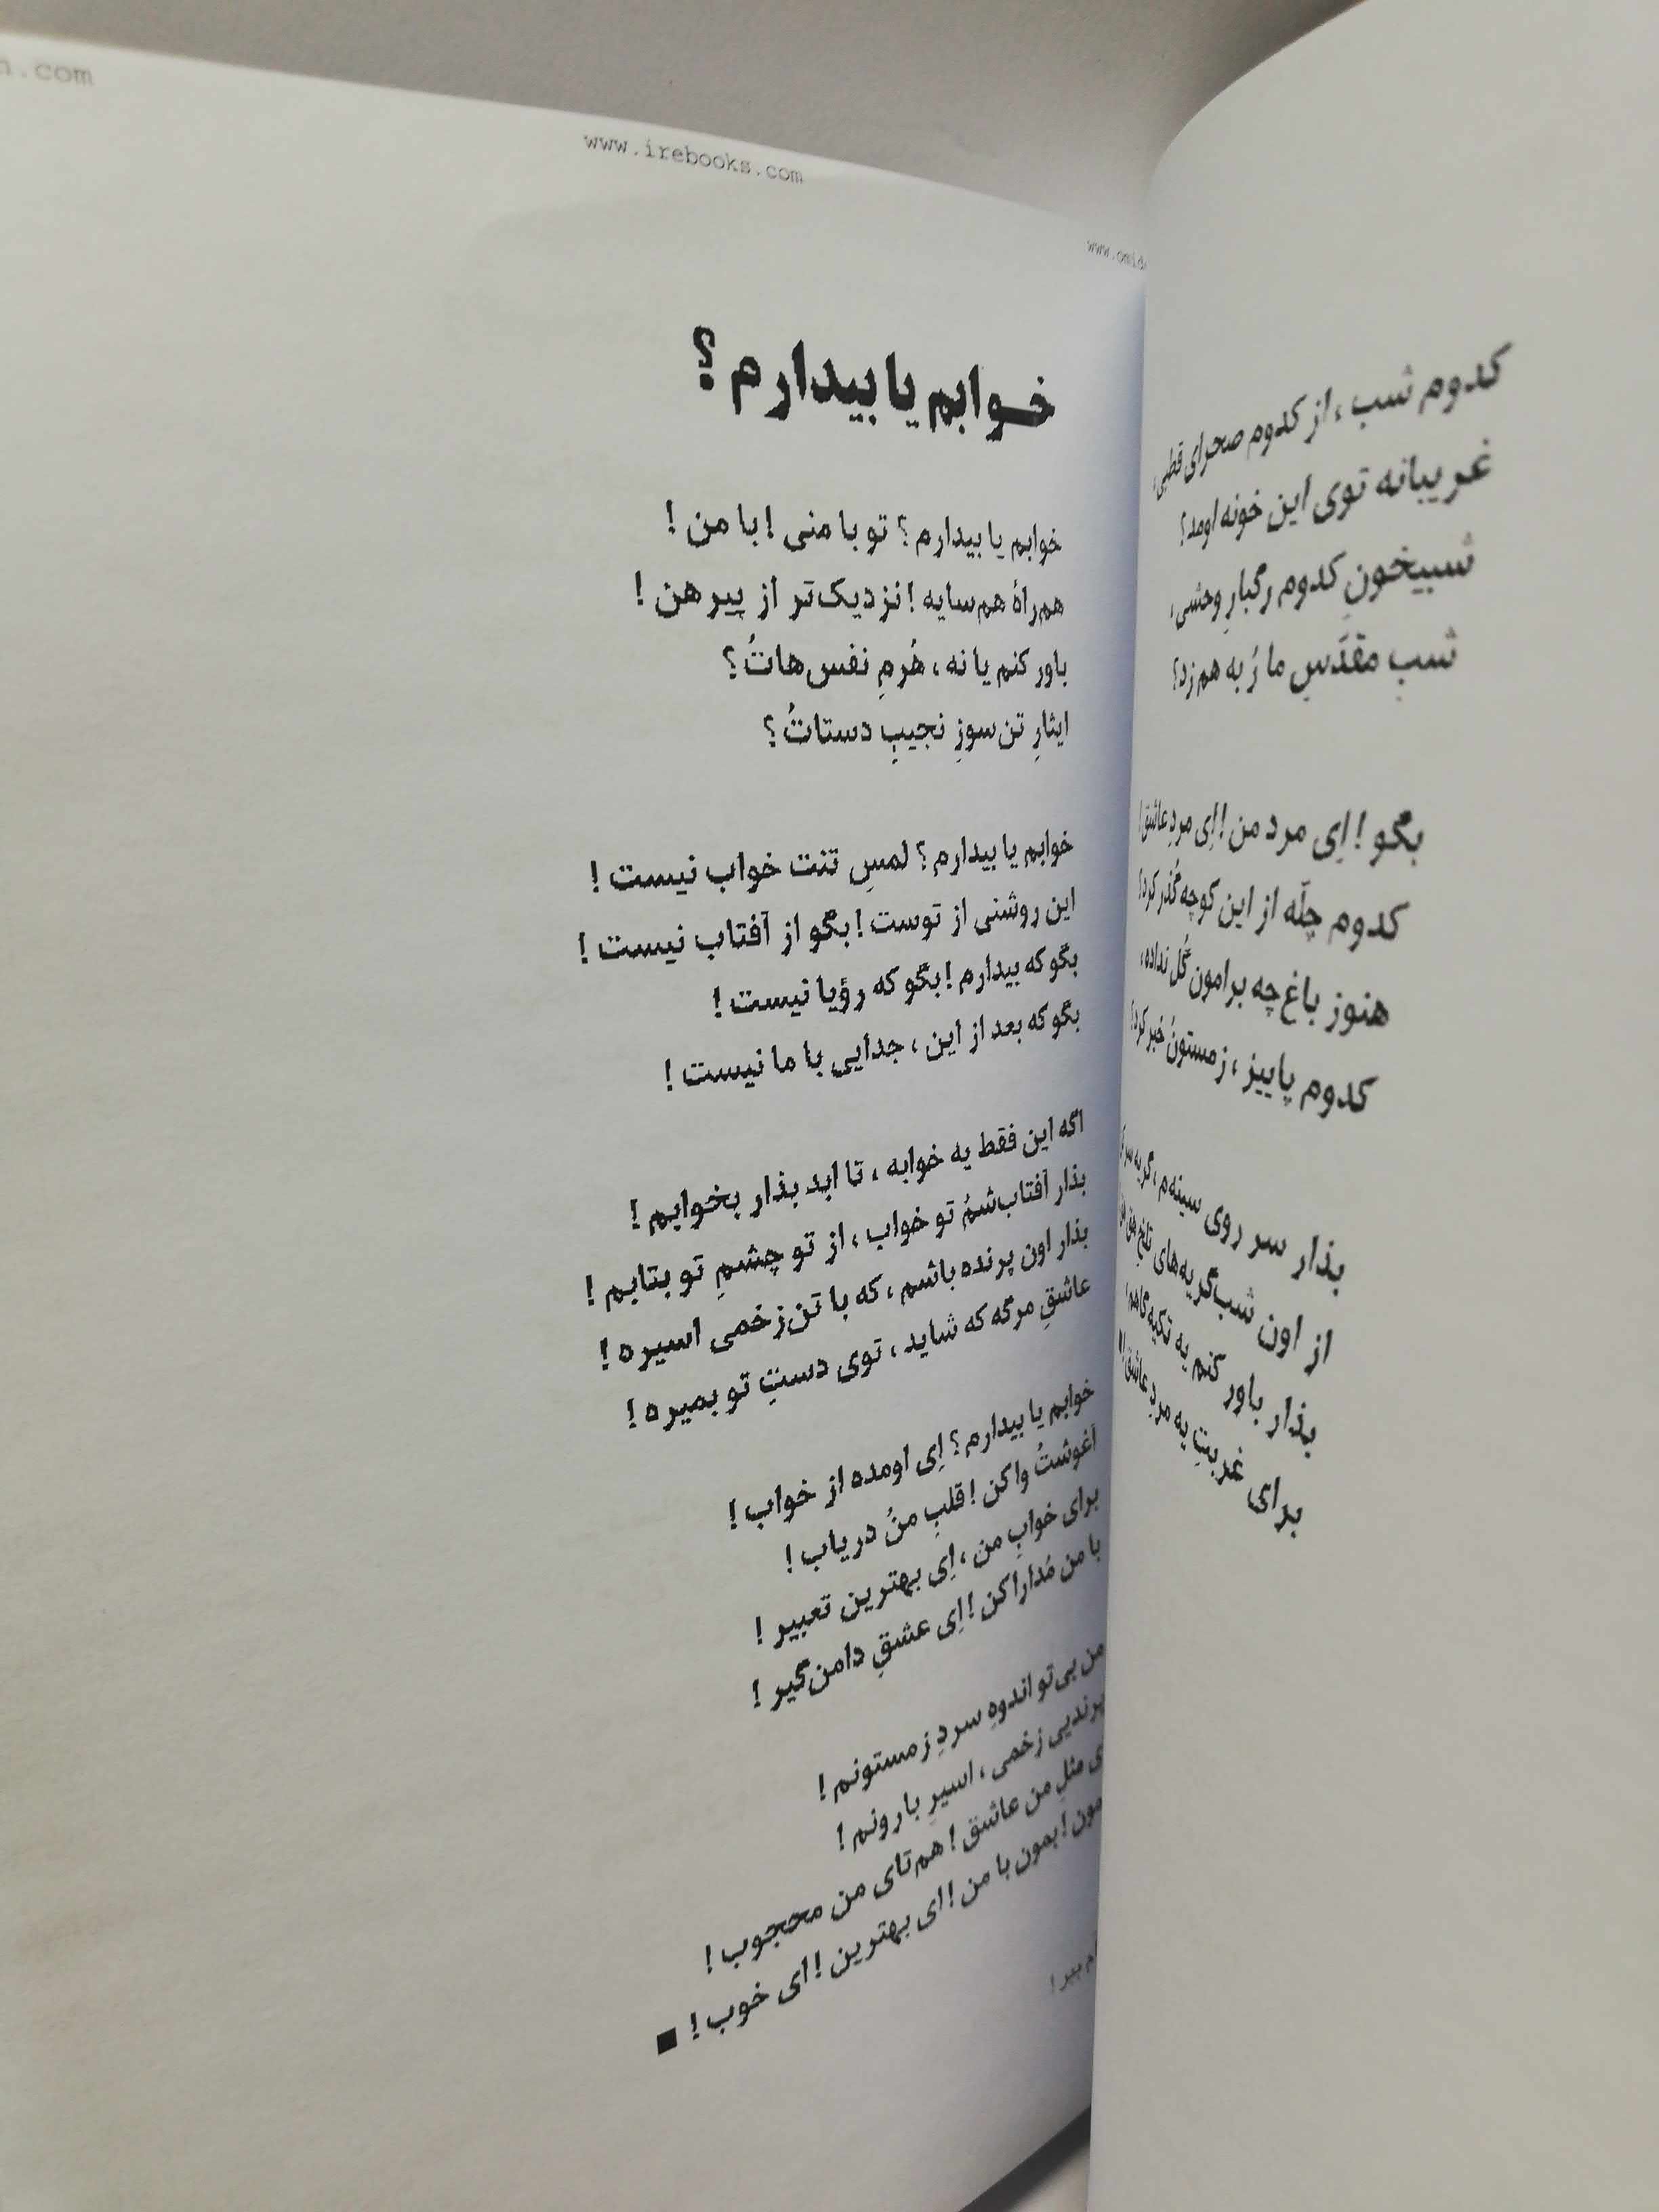 n.com
www.irebooks.com
www.omid
کدوم شب ، از کدوم صحرای قطبی،
غریبانه توی این خونه اومد؟
شبیخونِ کدوم رگبارِ وحشی،
شبِ مقدّسِ ما رُ به هم زد؟
بگو ! اِی مرد من ! اِی مردِ عاشق !
کدوم چلّه از این کوچه گُذر کرد؟
هنوز باغ‌چه برامون گُل نداده،
کدوم پاییز ، زمستونُ خبر کرد؟
بذار سر روی سینه‌م ، گریه سر
از اون شب‌گریه‌های تلخِ هق هق
بذار باور کنم یه تکیه‌گاهم،
برای غربتِ یه مردِ عاشق !
خوابم یا بیدارم ؟
خوابم یا بیدارم ؟ تو با منی ! با من !
هم‌راهُ هم‌سایه ! نزدیک‌تر از پیرهن !
باور کنم یا نه ، هُرمِ نفس‌هاتُ ؟
ایثارِ تن‌سوزِ نجیبِ دستاتُ ؟
خوابم یا بیدارم ؟ لمسِ تنت خواب نیست !
این روشنی از توست ! بگو از آفتاب نیست !
بگو که بیدارم ! بگو که رؤیا نیست !
بگو که بعد از این ، جدایی با ما نیست !
اگه این فقط یه خوابه ، تا ابد بذار بخوابم !
بذار آفتاب‌شمُ تو خواب ، از تو چشمِ تو بتابم !
بذار اون پرنده باشم ، که با تن‌زخمی اسیره !
عاشقِ مرگه که شاید ، توی دستِ تو بمیره !
خوابم یا بیدارم ؟ اِی اومده از خواب !
آغوشتُ واکن ! قلبِ منُ دریاب !
برای خوابِ من ، اِی بهترین تعبیر !
با من مُدارا کن ! اِی عشقِ دامن‌گیر !
من بی‌تو اندوهِ سردِ زمستونم !
پرنده‌یی زخمی ، اسیرِ بارونم !
ی مثلِ من عاشق ! هم‌تای من محجوب !
مون ! بمون با من ! ای بهترین ! ای خوب ! ■